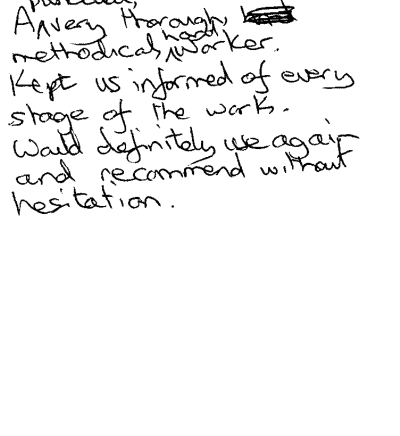 A very thorough,
methodical, hard worker.
Kept us informed of every
stage of the work.
Would definitely use again
and recommend without
hesitation.